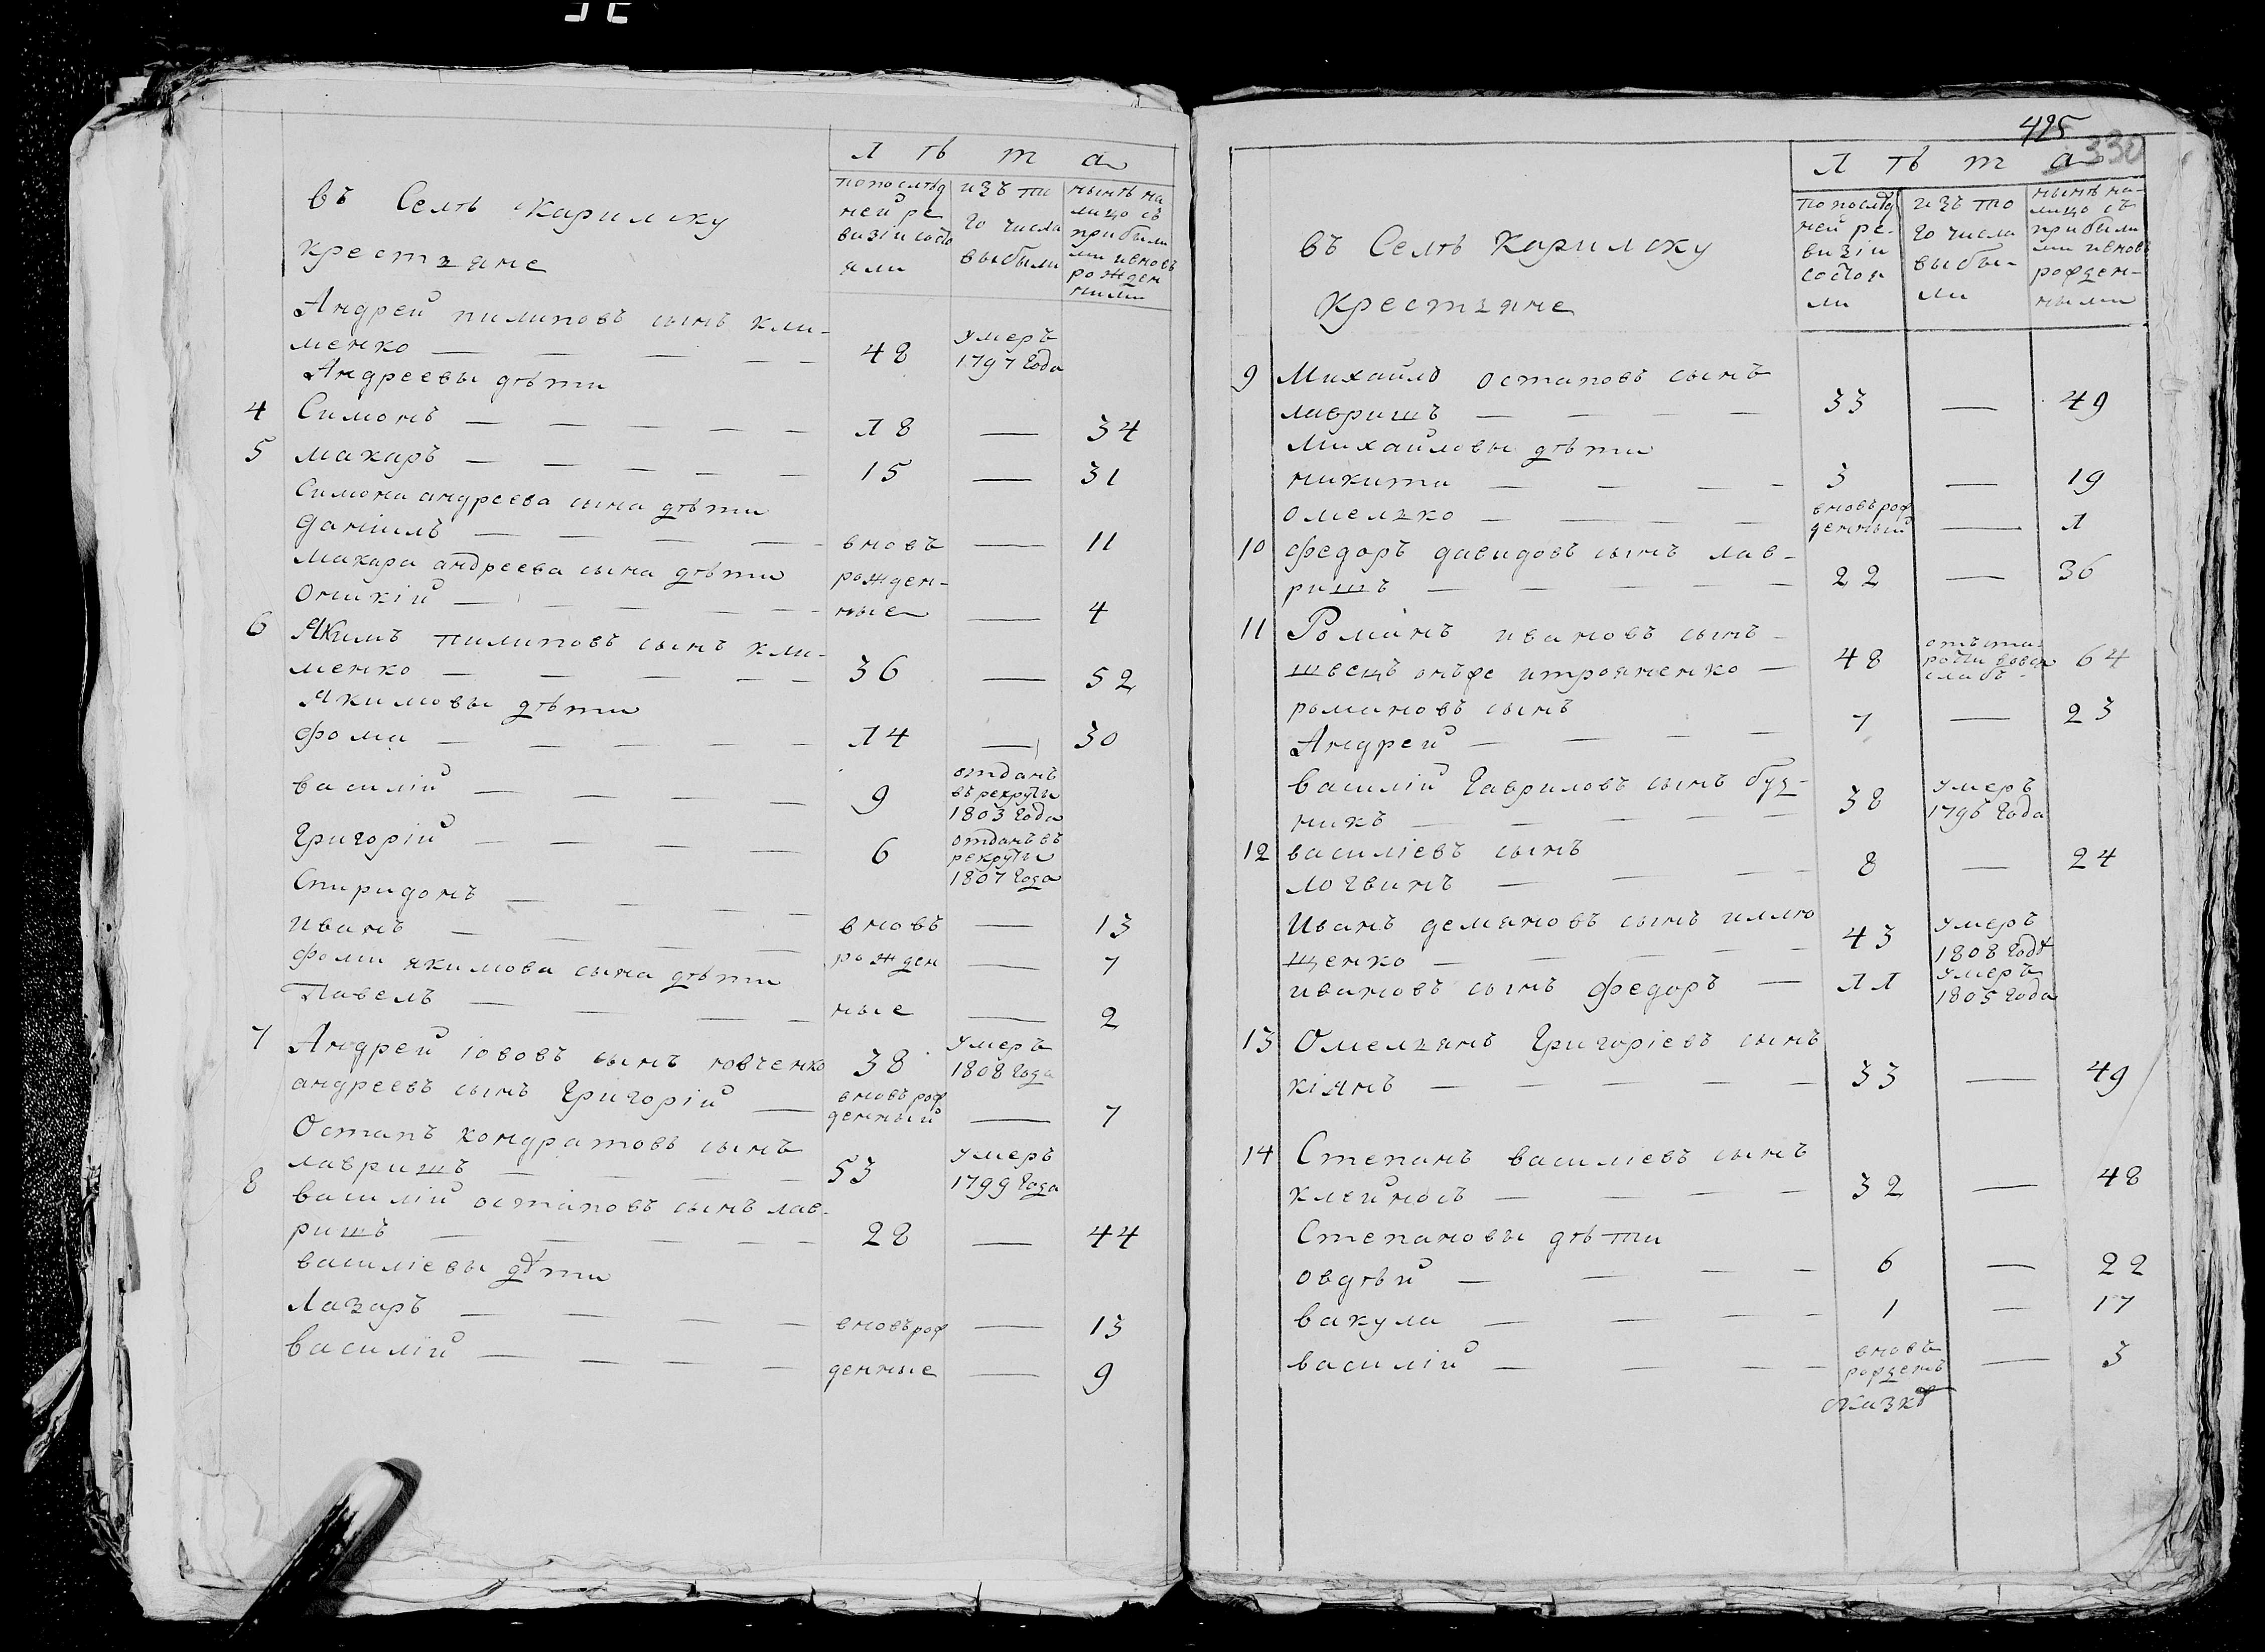 Л ѣ т а
въ Селѣ Карилску
крестьяне
попослѣд
ней ре
визіи состо
яли
изъ то
го числа
выбыли
нынѣ на
лицо съ
прибыли
ми ивновь
рожден
ными
Андрей пилиповъ сынъ кли-
менко — — — — — 48 умеръ 1797 года
Андреевы дѣти
4 Симонъ — — — — — 18 — 34
5 макаръ — — — — — 15 — 31
Симона андреева сына дѣти
даніилъ — — — — вновь — 11
макара андреева сына дѣти рожден-
Оникій — — — — — ные — 4
6 Якимъ пилиповъ сынъ кли-
менко — — — — — 36 — 52
Якимовы дѣти
фома — — — — — 14 — 30
василій — — — — — 9 отданъ въ рекруты 1803 года
Григорій — — — — — 6 отданъ въ рекруты 1807 года
Спиридонъ — — — —
иванъ — — — — вновь — 13
фомы якимова сына дѣти рожден — 7
Павелъ — — — — ные — 2
7 Андрей іововъ сынъ ювченко 38 умеръ 1808 года
андреевъ сынъ Григорій — вновь рож денный — 7
Остапъ кондратовъ сынъ
лавришъ — — — — 53 умеръ 1799 года
8 василій остаповъ сынъ лав-
ришъ — — — — — 28 — 44
василіевы дѣти
Лазаръ — — — — вновь рож — 13
василій — — — — денные — 9
425
330
Л ѣ т а
въ Селѣ Карилску
крестьяне
попослѣд
ней ре-
визіи
состоя
ли
изъ то
го числа
выбы-
ли
нынѣ на-
лицо съ
прибыли
ми ивновь
рожден-
ными
9 Михайло остаповъ сынъ
лавришъ — — — — 33 — 49
михайловы дѣти
никита — — — — 3 — 19
омелько — — — — вновь рож денный — 1
10 федоръ давидовъ сынъ лав-
ришъ — — — — 22 — 36
11 Романъ ивановъ сынъ
швецъ онъже итрояненко — 48 64
романовъ сынъ
Андрей — — — — 7 — 23
василій Гавриловъ сынъ буд-
никъ — — — — — 38 умеръ 1796 года
12 василіевъ сынъ
логвинъ — — — — 8 — 24
Иванъ демяновъ сынъ иллю
щенко — — — — 43 умеръ 1808 года
ивановъ сынъ федоръ — 11 умеръ 1805 года
13 Омельянъ Григоріевъ сынъ
кіянъ — — — — — 33 — 49
14 Степанъ василіевъ сынъ
клейносъ — — — — 32 — 48
Степановы дѣти
овдѣй — — — — 6 — 22
вакула — — — — 1 — 17
василій — — — — вновь рожденъ — 3